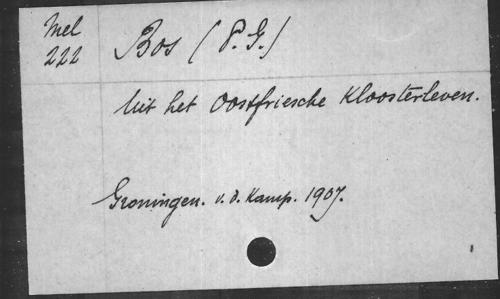 Mel
222
Bos (P. G.)
Uit het Oostfriesche Kloosterleven.
Groningen. v. d. Kamp. 1907.